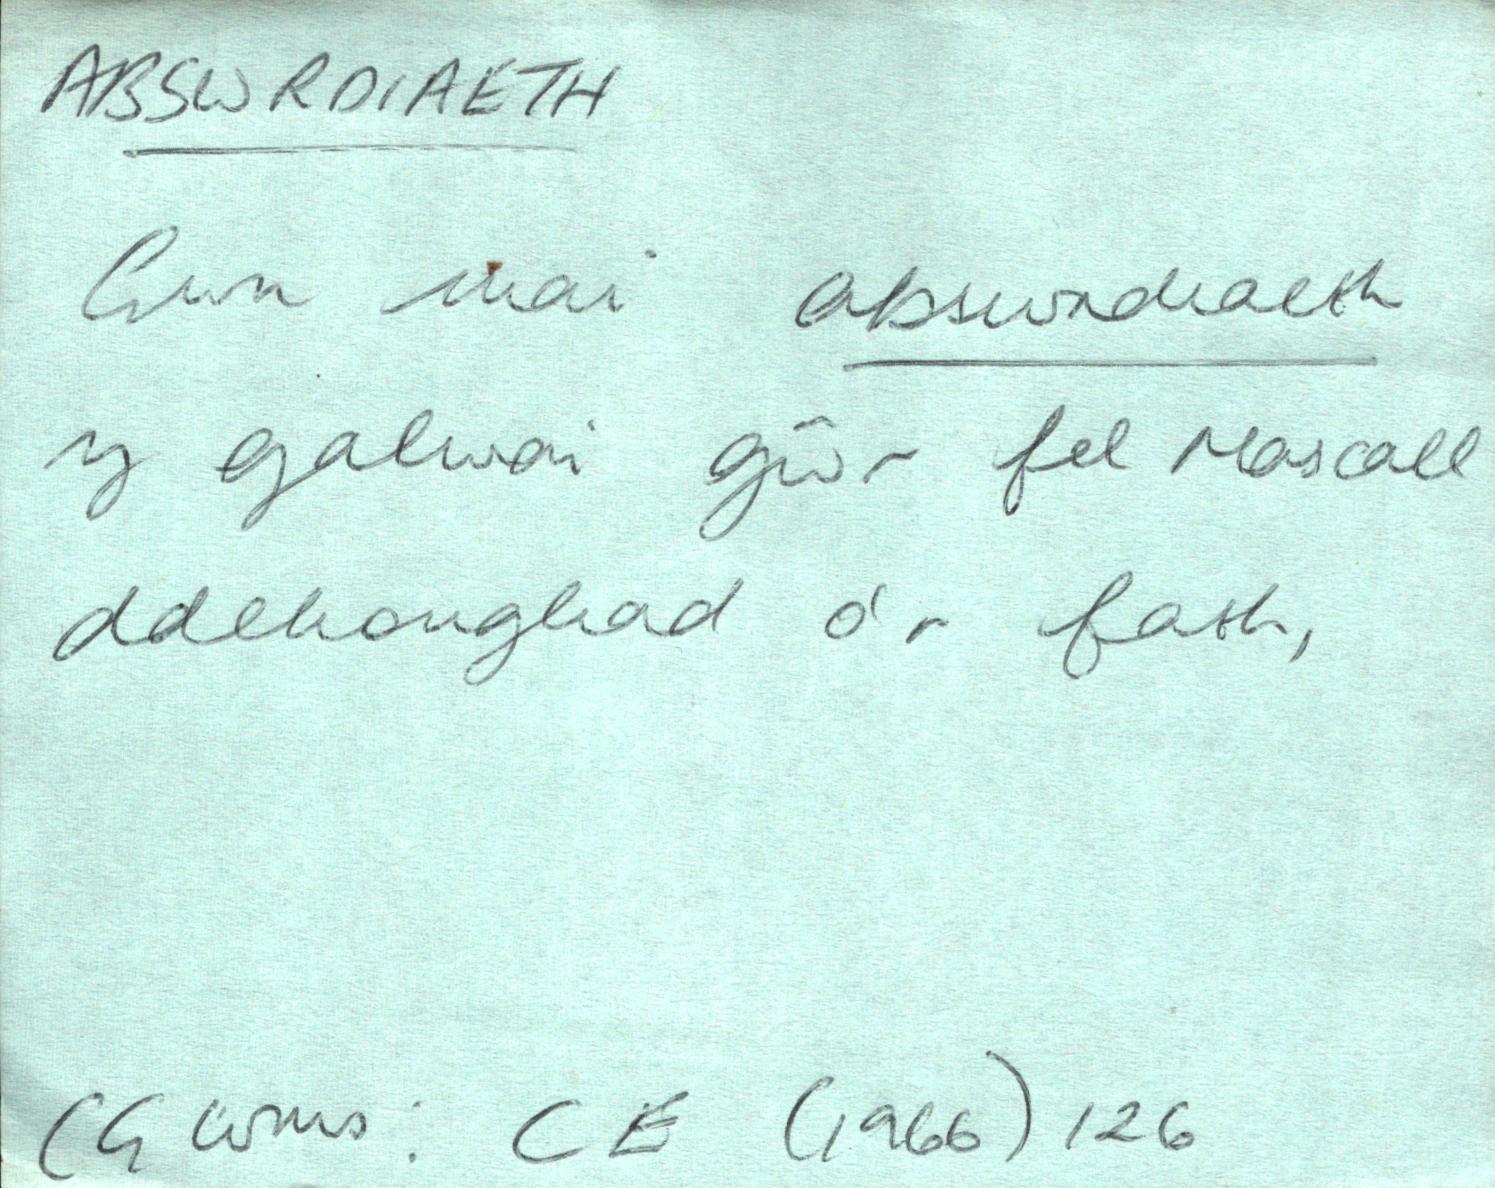 ABSWRDIAETH
Gwn mai abswrdiaeth
y galwai gŵr fel Mascall
ddehongliad o'r fath,
CG Wms: CE (1966) 126